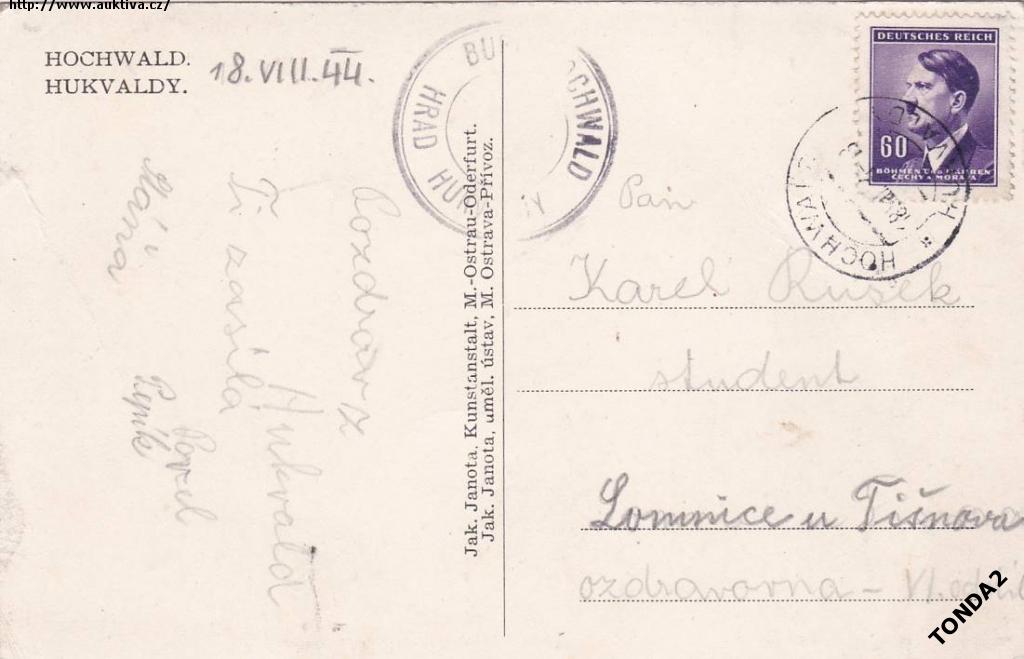 http://www.auktiva.cz/
HOCHWALD.
HUKVALDY.
18.VIII.44.
HRAD HUKVALDY
HOCHWALD
DEUTSCHES REICH
60
BÖHMEN UND MÄHREN
ČECHY A MORAVA
HOCHWALD
Pozdrav z
Hukvald
Ti zasílá
Pavel
Pepík
Jak. Janota, Kunstanstalt, M.-Ostrau-Oderfurt.
Jak. Janota, uměl. ústav, M. Ostrava-Přívoz.
Pan
Karel Rusek
student
Lomnice u Tišnova
ozdravovna - VI.
TONDA2